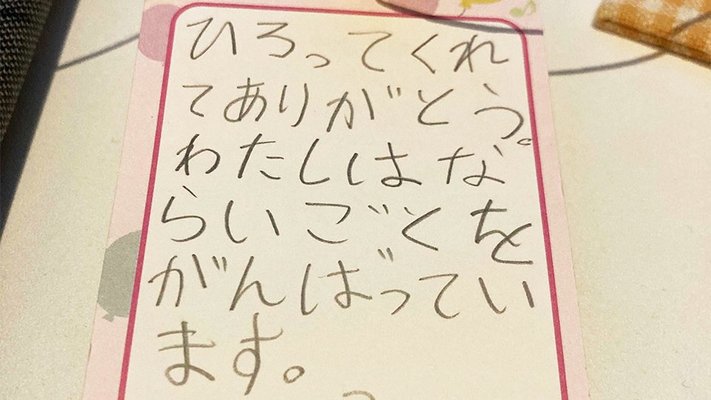 ひろってくれ
てありがとう。
わたしはな
らいごとを
がんばってい
ます。